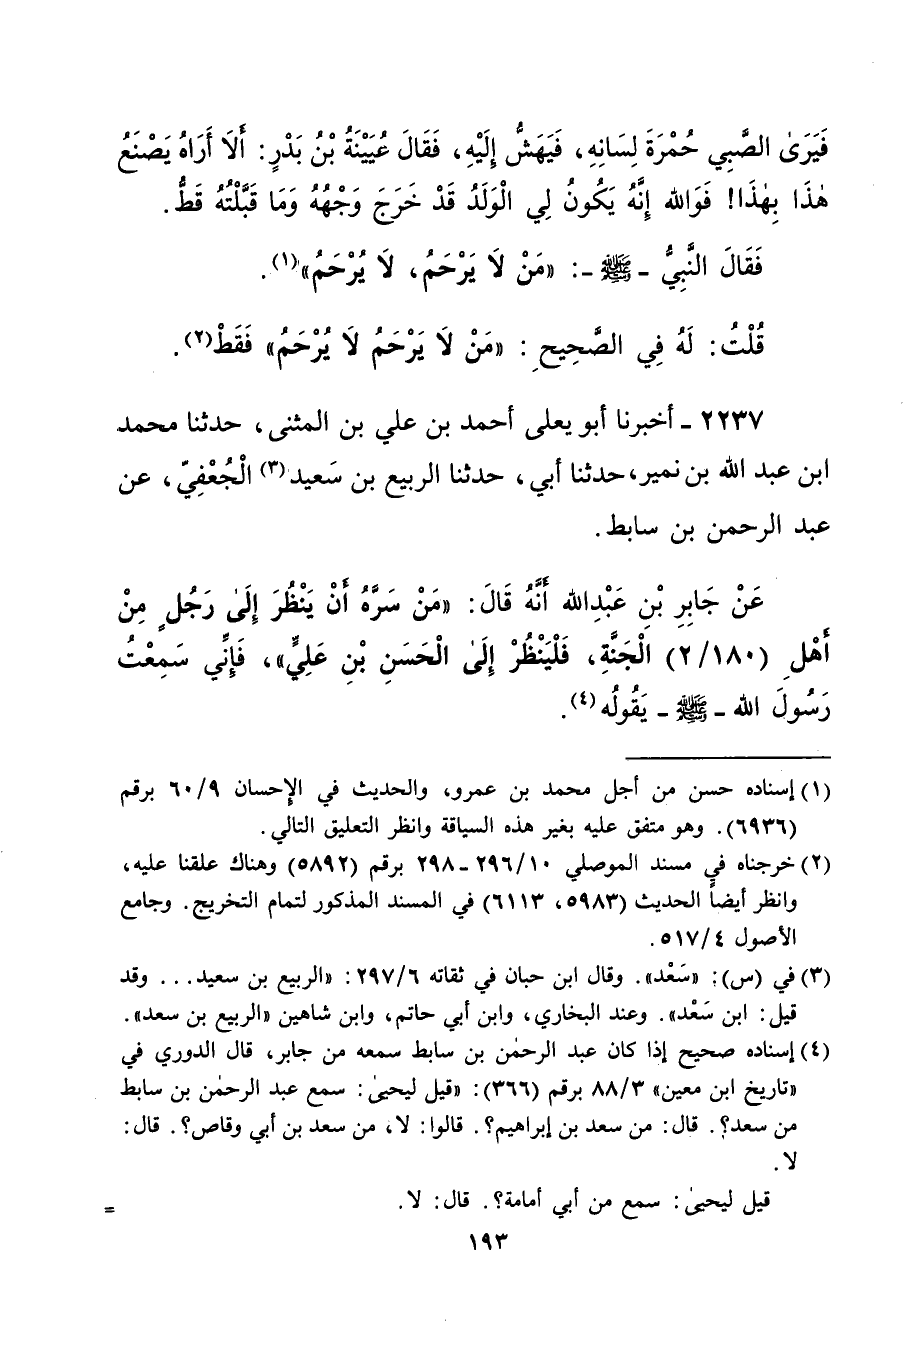 فَيَرَىٰ الصَّبِي حُمْرَةَ لِسَانِهِ، فَيَهَشُّ إِلَيْهِ، فَقَالَ عُيَيْنَةُ بْنُ بَدْرٍ: أَلَا أَرَاهُ يَصْنَعُ
هٰذَا بِهٰذَا! فَوَاللهِ إِنَّهُ يَكُونُ لِي الْوَلَدُ قَدْ خَرَجَ وَجْهُهُ وَمَا قَبَّلْتُهُ قَطُّ.
فَقَالَ النَّبِيُّ ـ ﷺ ـ: «مَنْ لَا يَرْحَمُ، لَا يُرْحَمُ»(١).
قُلْتُ: لَهُ فِي الصَّحِيحِ: «مَنْ لَا يَرْحَمُ لَا يُرْحَمُ» فَقَطْ(٢).
٢٢٣٧ ـ أخبرنا أبو يعلى أحمد بن علي بن المثنى، حدثنا محمد
ابن عبد الله بن نمير، حدثنا أبي، حدثنا الربيع بن سَعيد(٣) الْجُعْفِيّ، عن
عبد الرحمن بن سابط.
عَنْ جَابِرِ بْنِ عَبْدِاللهِ أَنَّهُ قَالَ: «مَنْ سَرَّهُ أَنْ يَنْظُرَ إِلَىٰ رَجُلٍ مِنْ
أَهْلِ (٢/١٨٠) الْجَنَّةِ، فَلْيَنْظُرْ إِلَىٰ الْحَسَنِ بْنِ عَلِيٍّ»، فَإِنِّي سَمِعْتُ
رَسُولَ اللهِ ـ ﷺ ـ يَقُولُه(٤).
(١) إسناده حسن من أجل محمد بن عمرو، والحديث في الإحسان ٦٠/٩ برقم
(٦٩٣٦). وهو متفق عليه بغير هذه السياقة وانظر التعليق التالي.
(٢) خرجناه في مسند الموصلي ٢٩٦/١٠ ـ ٢٩٨ برقم (٥٨٩٢) وهناك علقنا عليه،
وانظر أيضاً الحديث (٥٩٨٣، ٦١١٣) في المسند المذكور لتمام التخريج. وجامع
الأصول ٥١٧/٤.
(٣) في (س): «سَعْد». وقال ابن حبان في ثقاته ٢٩٧/٦: «الربيع بن سعيد... وقد
قيل: ابن سَعْد». وعند البخاري، وابن أبي حاتم، وابن شاهين «الربيع بن سعد».
(٤) إسناده صحيح إذا كان عبد الرحمٰن بن سابط سمعه من جابر، قال الدوري في
«تاريخ ابن معين» ٨٨/٣ برقم (٣٦٦): «قيل ليحيىٰ: سمع عبد الرحمٰن بن سابط
من سعد؟. قال: من سعد بن إبراهيم؟. قالوا: لا، من سعد بن أبي وقاص؟. قال:
لا.
قيل ليحيىٰ: سمع من أبي أمامة؟. قال: لا.
=
١٩٣